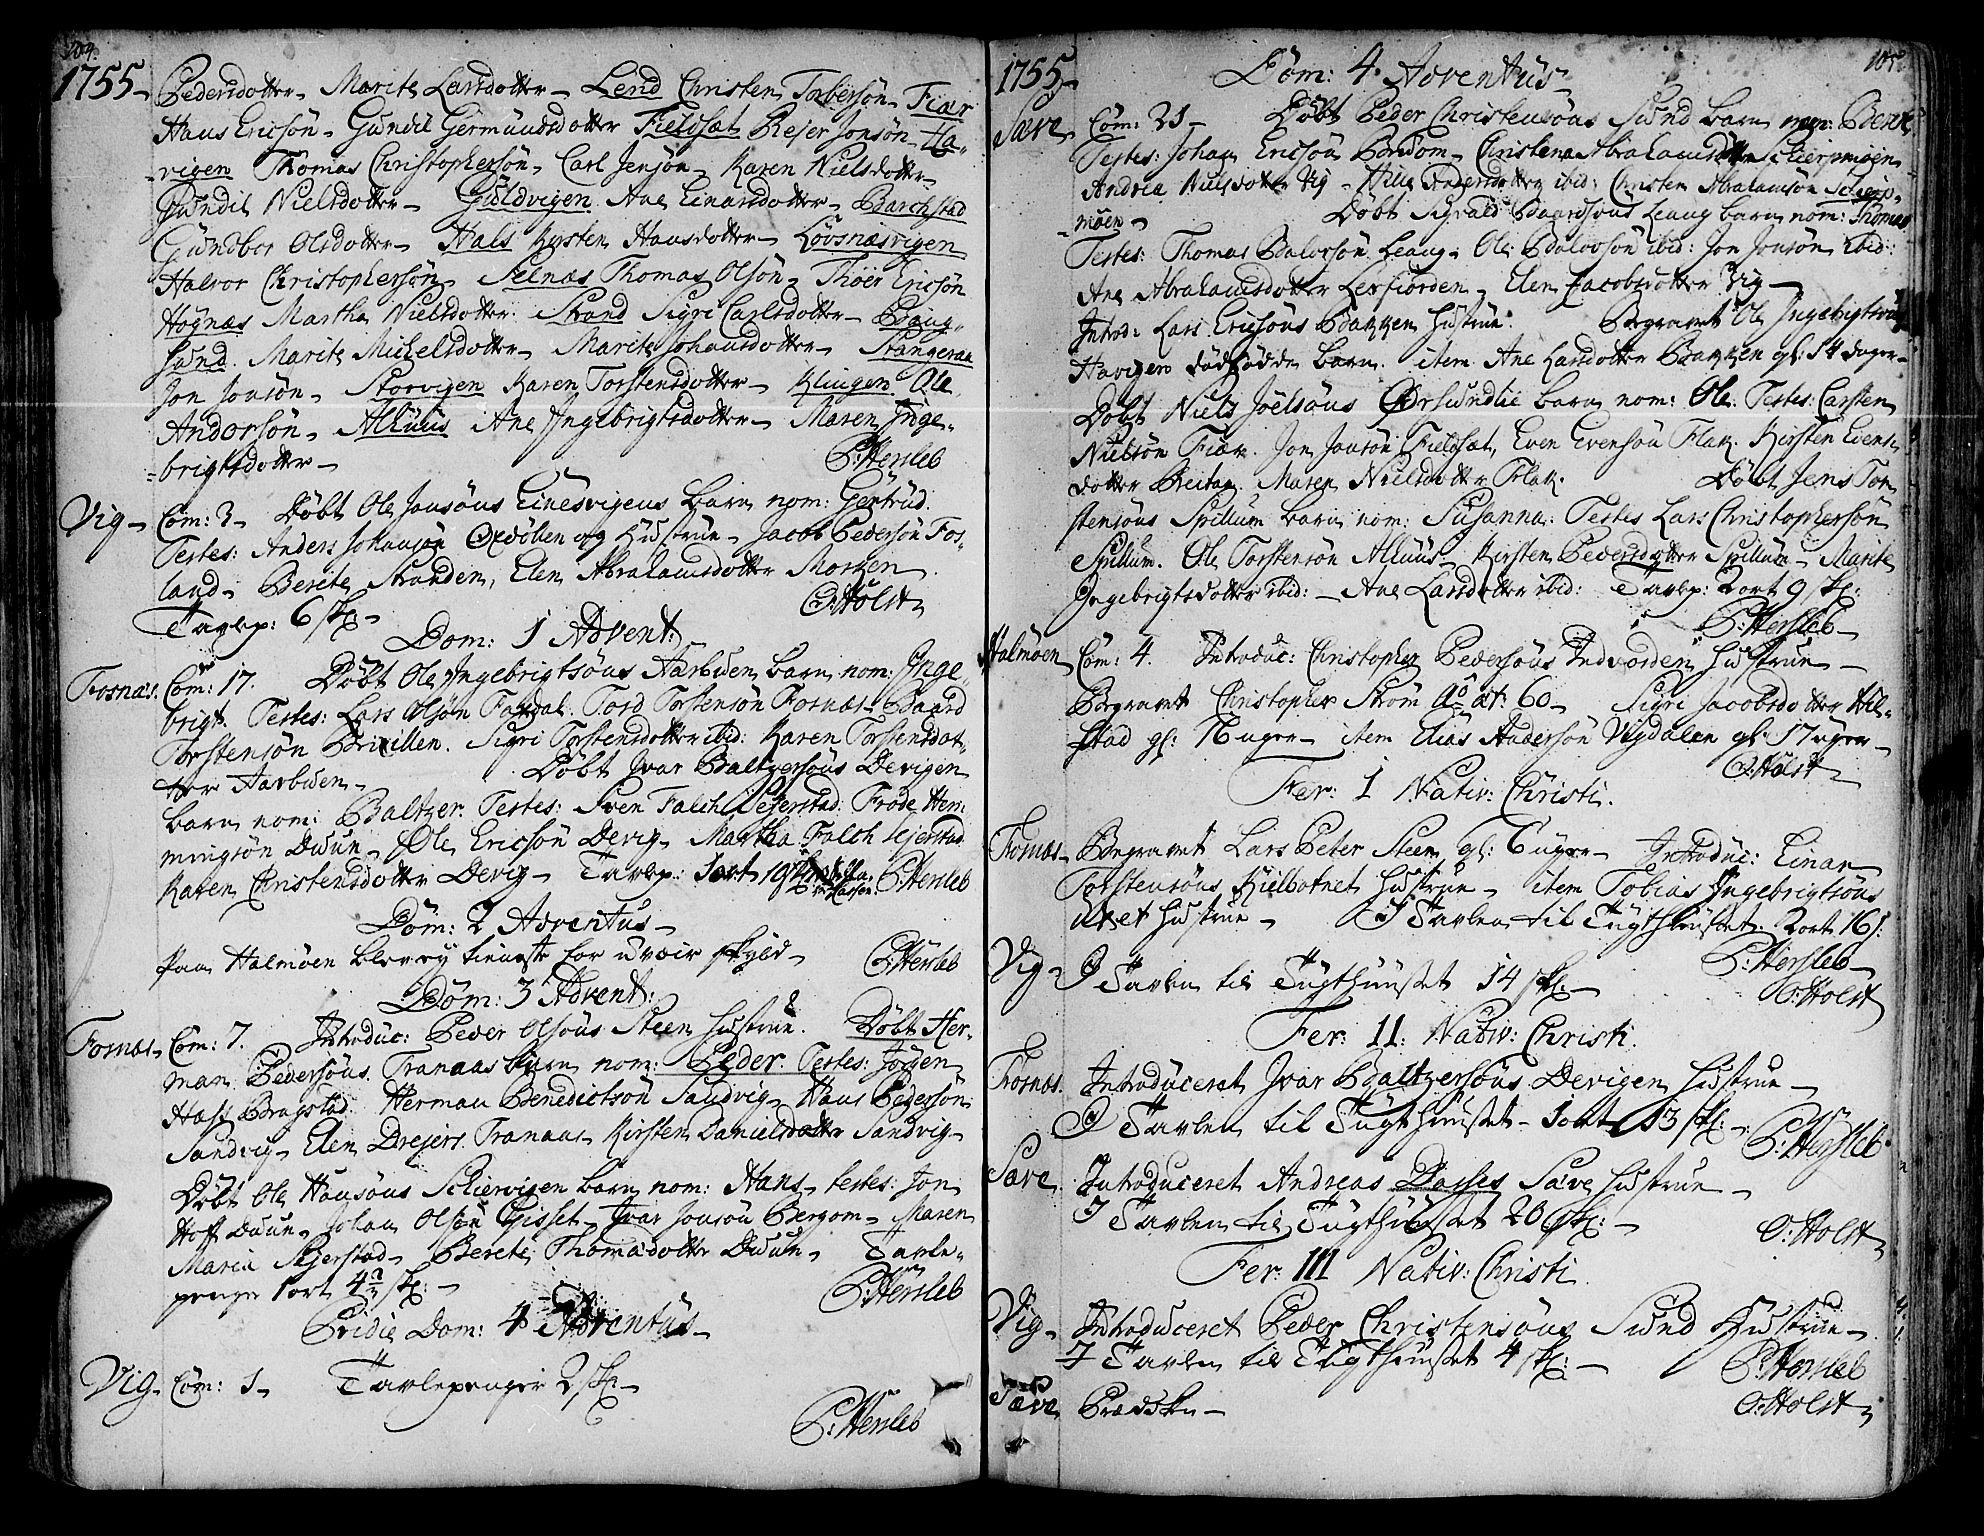 104.
1755-
Pedersdotter- Marite Larsdotter- Lend Christen Torbersön- Fiær
Hans Ericsön- Gundil Germundsdotter Fieldsæt Rejer Jonsön- Ha-
-vigen Thomas Christophersön- Carl Jensön- Karen Nielsdotter-
Gundil Nielsdotter- Guldvigen Ane Einarsdotter- Barchstad
Gundbor Olsdotter- Hals Kirsten Hansdotter- Lövsnæsvigen
Halvor Christophersön- Selnæs Thomas Olsön- Thöer Ericsön
Högnæs Martha Nielsdotter. Strand Sigri Carlsdotter- Baug-
sund. Marite Michelsdotter- Marite Johansdotter- Stangeraa
Jon Jonsön- Storvigen Karen Torstensdotter- Klingen Ole
Andersön- Alhuus Ane Ingebrigtsdotter- Maren Inge-
-brigtsdotter-
P: Hersleb
Vig- Com: 3- Döbt Ole Jonsöns Einesvigens barn nom: Gertrud.
Testes: Anders Johansön Oxdöllen og Hustrue- Jacob Pedersön Fos-
land- Berete Stranden, Elen Abrahamsdotter Morken
Tavlep: 6 sk:-
O: Holst
Dom: 1 Advent:
Fosnæs. Com: 17. Döbt Ole Ingebrigtsöns Aarbuen barn nom: Inge-
brigt. Testes: Lars Olsön Faxdal. Tord Torstensön Fosnæs- Baard
Torstensön Brixillen. Sigri Torstensdotter ibid: Karen Torstensdot-
ter Aarbuen- Döbt Ivar Baltzersöns Devigen
barn nom: Baltzer. Testes: Sven Falch Sejerstad: Frode Hem-
mingsön Duun- Ole Ericsön Devig- Martha Falch Sejerstad
Karen Christensdotter Devig- Tavlep: 1 ort 19 sk:
P: Hersleb
Dom: 2 Adventus-
Paa Halmöen blev ej tieneste for uveir skyld-
P: Hersleb
Dom: 3 Advent:
Fosnæs- Com: 7. Introduc: Peder Olsöns Steen Hustrue. Döbt Her-
man Pedersöns Tranaas barn nom: Peder. Testes: Jörgen
Hass Bragstad. Herman Benedictsön Sandvig- Hans Pedersön
Sandvig- Elen Drejers Tranaas- Kirsten Danielsdotter Sandvig-
Döbt Ole Hansöns Schiervigen barn nom: Hans- testes: Jon
Hoff Duun- Johan Olsön Gisset- Ivar Jonsön Bergom- Maren
Maria Sejerstad- Berete Thomædotter Duun- Tavle-
penge 1 ort 4 sk:-
P: Hersleb
Pridie Dom: 4 Adventus-
Vig- Com: 1- Tavlepenger 2 sk:-
P: Hersleb
105.
1755-
Dom: 4. Adventus-
Sæve Com: 21- Döbt Peder Christensöns Sund barn nom: Bent
Testes: Johan Ericsön Bondom- Christena Abrahamsdotter Schierpmöen-
Andrea Nielsdotter Vig- Pille Andersdotter ibid: Christen Abrahamsön Schierp-
-möen- Döbt Sigvald Baardsöns Leaug barn nom: Thomas
Testes: Thomas Baldorsön Leaug- Ole Baldorsön ibid: Jon Jonsön ibid:
Ane Abrahamsdotter Lerfiorden- Elen Jacobsdotter Vig-
Introd: Lars Ericsöns Bakken Hustrue. Begravet Ole Ingebrigtsöns
Havigen dödfödde barn. item Ane Larsdotter Bakken gl: 14 dager-
Döbt Niels Joelsöns Örsundlie barn nom: Ole. Testes: Carsten
Nielsön Fiær. Jon Jonsön Fieldsæt, Even Evensön Flak. Kirsten Evens-
dotter Breitag. Maren Nielsdotter Flak. Döbt Jens Tor-
stensöns Spillum barn nom: Susanna: Testes Lars Christophersön
Spillum. Ole Torstensön Alhuus- Kirsten Pedersdotter Spillum- Marite
Ingebrigtsdotter ibid:- Ane Larsdotter ibid: Tavlp: 2 ort 9 sk:
P: Hersleb-
Halmöen Com: 4. Introduc: Christopher Pedersöns Indvorden Hustrue-
Begravet Christopher Ström Ao æt: 60- Sigri Jacobsdotter Hil-
stad gl: 16 uger- item Elias Andersön Vigdalen gl: 17 uger-
O: Holst-
Fer: 1 Nativ: Christi.
Fosnæs- Begravet Lars Peter Steen gl: 6 uger- Introduc: Einar
Torstensöns Kielbotnet Hustrue- item Tobias Ingebrigtsöns
Hustrue- I Tavlen til Tugthuuset. 2 ort 16 s:
P: Hersleb-
Vig- I Tavlen til Tugthuuset 14 sk:-
O: Holst
Fer: 11: Nativ: Christi.
Fosnæs. Introduceret Ivar Baltzersöns Devigen Hustrue-
I Tavlen til Tugthuuset- 1 ort 13 sk:-
P: Hersleb-
Sæve Introduceret Andreas Dasses Sæve Hustrue-
I Tavlen til Tugthuuset 20 sk:-
O: Holst-
Fer: 111 Nativ: Christi.
Vig- Introduceret Peder Christensöns Sund Hustrue-
I Tavlen til Tugthuuset 4 sk:-
P: Hersleb
Sæve Prædiken-
O: Holst-